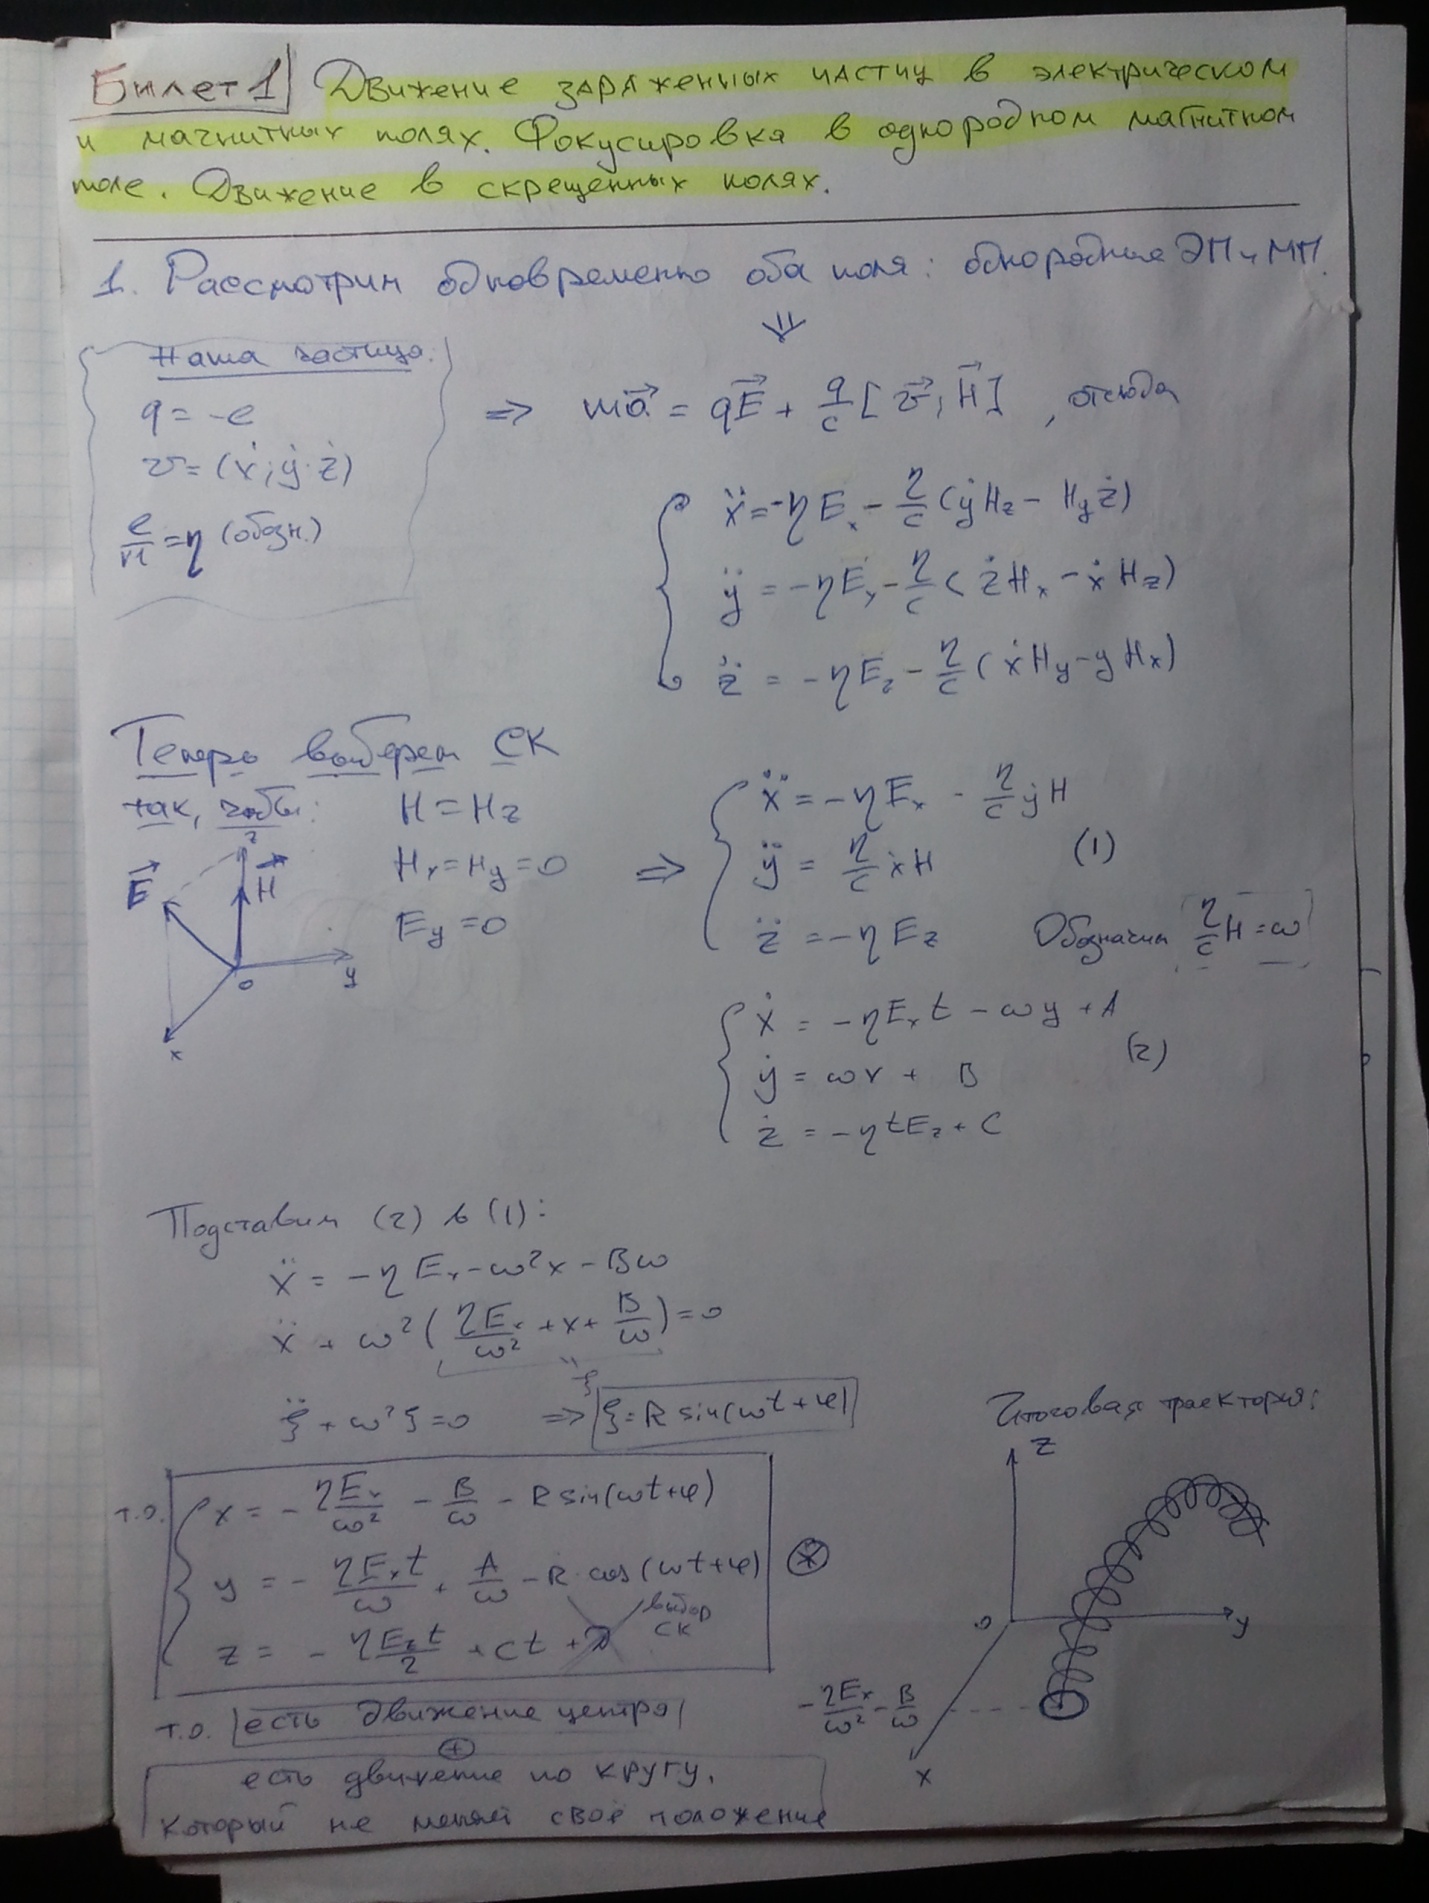 Билет 1 Движение заряженных частиц в электрическом
и магнитных полях. Фокусировка в однородном магнитном
поле. Движение в скрещенных полях.
1. Рассмотрим одновременно оба поля: однородные ЭП и МП.
⇓
Наша частица:
q = -e
v = (ẋ; ẏ; ż)
e/m = η (обозн.)
⇒ ma⃗ = qE⃗ + q/c [v⃗, H⃗], отсюда
ẍ = -ηEx - η/c (ẏHz - Hyż)
ÿ = -ηEy - η/c (żHx - ẋHz)
z̈ = -ηEz - η/c (ẋHy - yHx)
Теперь выберем СК
так, чтобы:
H = Hz
Hx = Hy = 0
Ey = 0
z
E⃗
H⃗
y
0
x
⇒ ẍ = -ηEx - η/c ẏH
ÿ = η/c ẋH (1)
z̈ = -ηEz
Обозначим η/c H = ω
ẋ = -ηEx t - ωy + A
ẏ = ωx + B (2)
ż = -ηtEz + C
Подставим (2) в (1):
ẍ = -ηEx - ω²x - Bω
ẍ + ω²(ηEx/ω² + x + B/ω) = 0
" ξ
ξ̈ + ω²ξ = 0 ⇒ ξ = R sin(ωt+φ)
т.о. x = - ηEx/ω² - B/ω - R sin(ωt+φ)
y = - ηEx t/ω + A/ω - R cos(ωt+φ) (*)
z = - ηEz t/2 + Ct +
выбор
СК
т.о. есть движение центра
+
есть движение по кругу,
который не меняет своё положение
Итоговая траектория:
z
0
y
- ηEx/ω² - B/ω
x